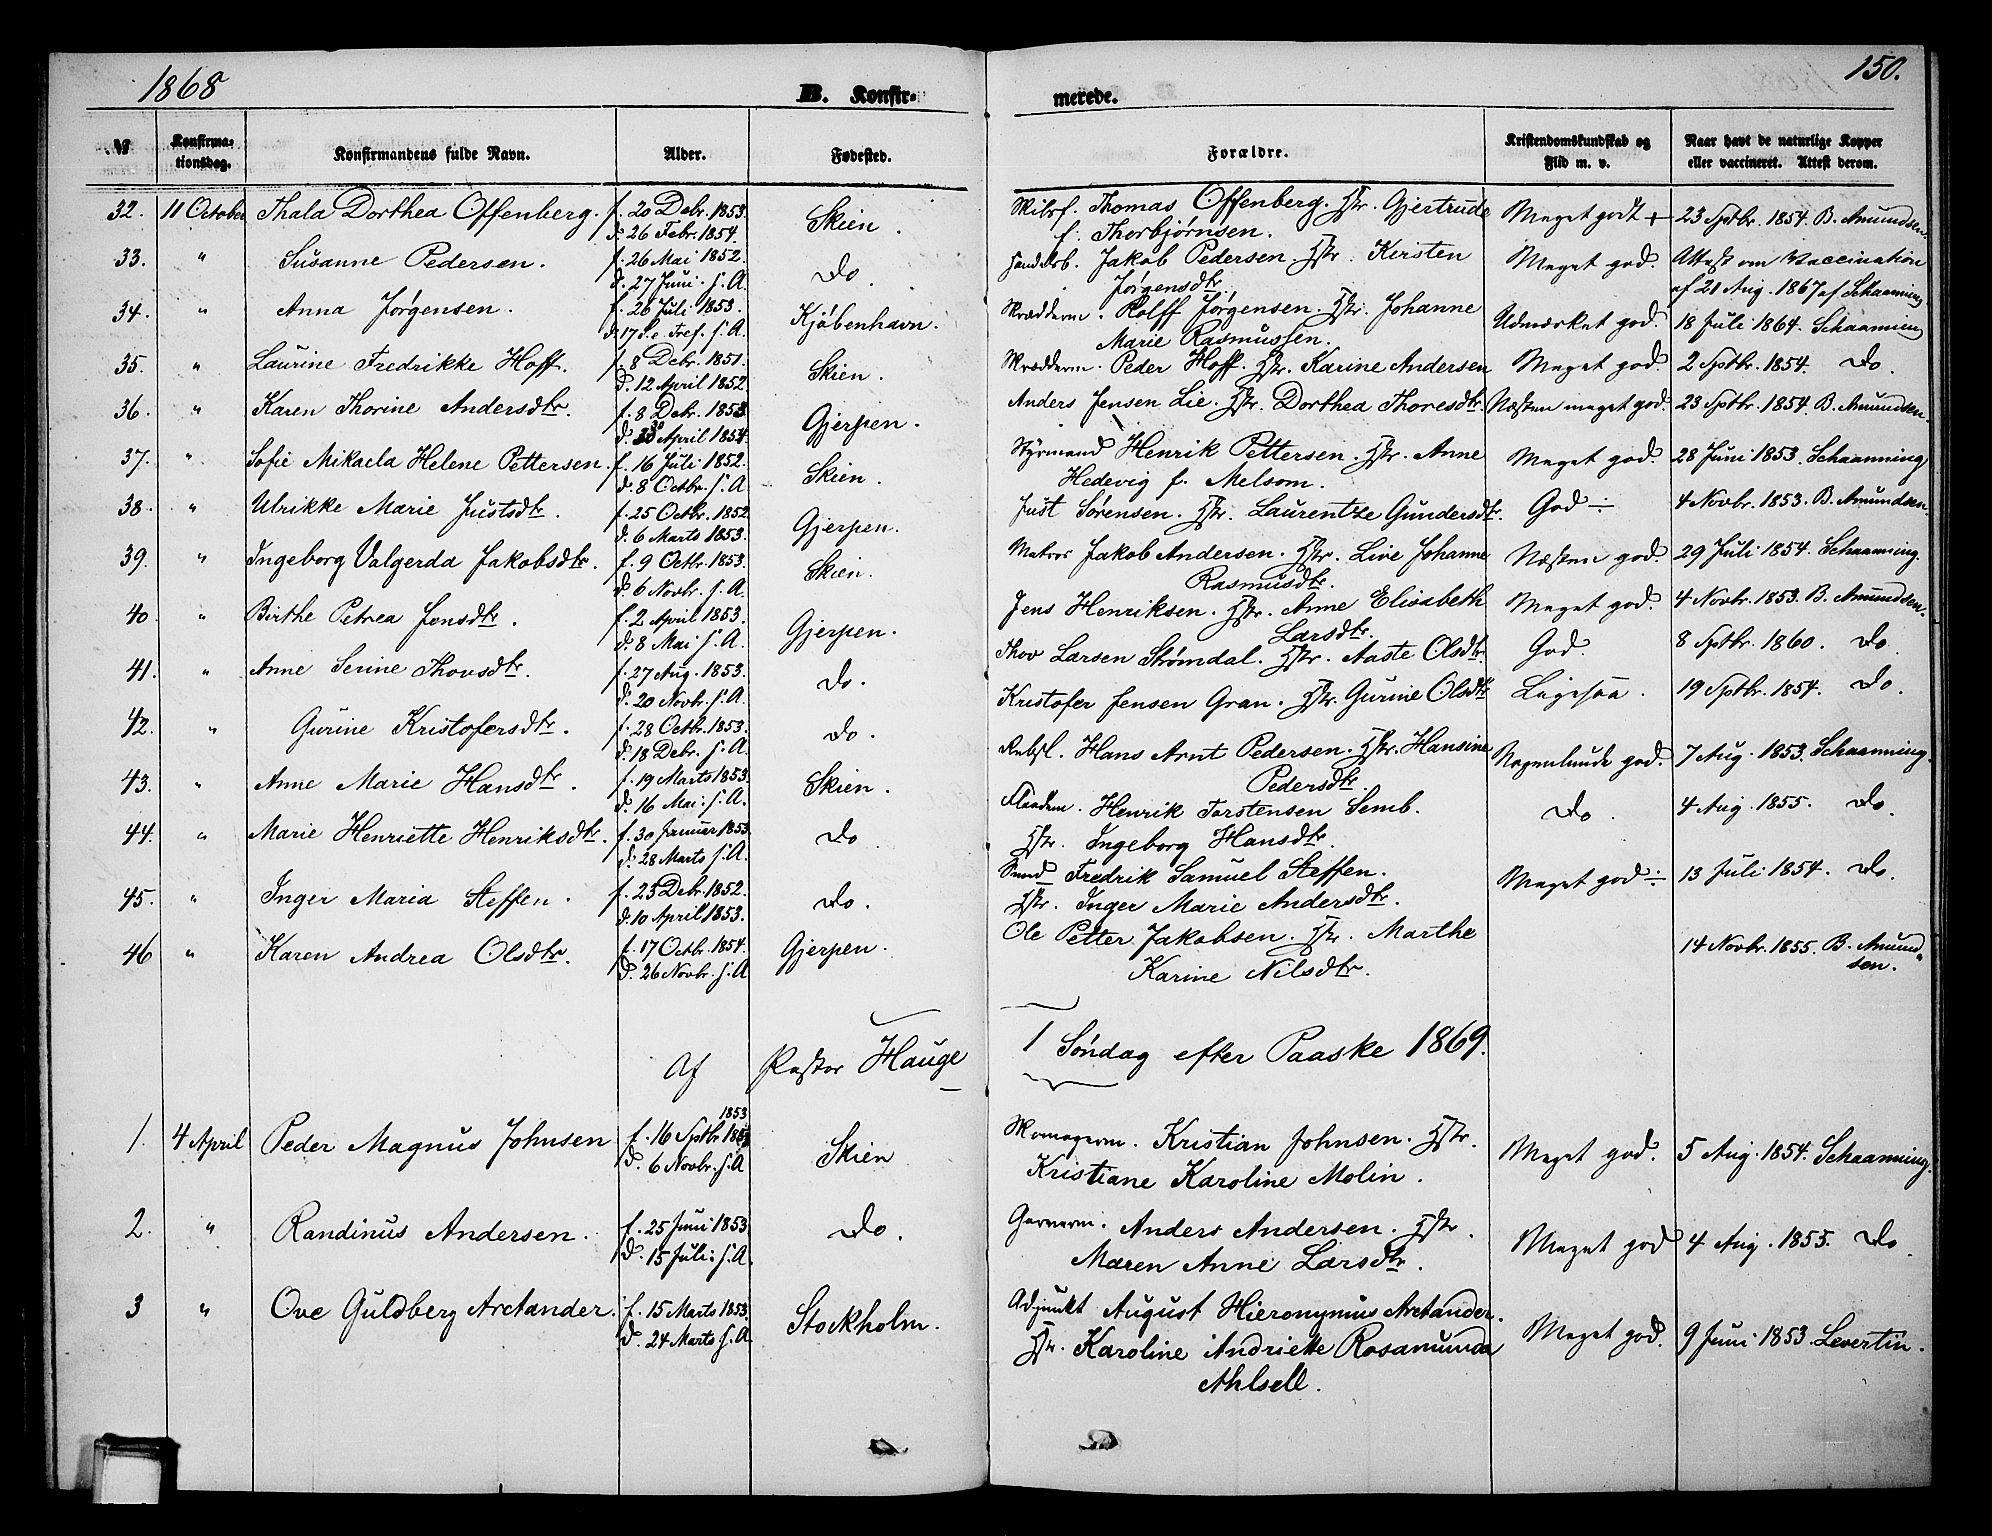 1868
B. Konfir-
merede.
150.
№ Konfirma-tionsdag. Konfirmandens fulde Navn. Alder. Fødested. Forældre. Kristendomskundskab og Flid m. v. Naar havt de naturlige Kopper eller vaccineret. Attest derom.
32. 11 October Thala Dorthea Offenberg. f. 20 Debr. 1853. Skien. Thomas Offenberg. Hstr. Gjertrude Meget godt + 23 Sptbr. 1854. B. Amundsen.
d. 26 Febr. 1854. f. Thorbjørnsen.
33. " Susanne Pedersen. f. 26 Mai 1852. Do Jakob Pedersen. Hstr. Kirsten Meget god. Attest om Vaccination
d. 27 Juni. s. A. Jørgensdtr. af 21 Aug. 1867 af Schaanning
34. " Anna Jørgensen. f. 26 Juli 1853. Kjøbenhavn. Skrædderm. Rolff Jørgensen. Hstr. Johanne Udmærket god. 18 Juli 1864. Schaanning
d. 17 S. e Tref. s. A. Marie Rasmussen.
35. " Laurine Fredrikke Hoff. f. 8 Debr. 1851. Skien. Skrædderm. Peder Hoff. Hstr. Karine Andersen Meget god. 2 Sptbr. 1854. Do.
d. 12 April 1852.
36. " Karen Thorine Andersdtr. f. 8 Debr. 1853. Gjerpen. Anders Jensen Lie. Hstr. Dorthea Thoresdtr. Næsten meget god. 23 Sptbr. 1854. B. Amundsen.
d. 30 April 1854.
37. " Sofie Mikaela Helene Pettersen. f. 16 Juli 1852. Skien. Styrmand Henrik Pettersen. Hstr. Anne Meget god. 28 Juni 1853. Schaanning
d. 8 Octbr. s. A. Hedevig f. Melsom.
38. " Ulrikke Marie Justsdtr. f. 25 Octbr. 1852. Gjerpen. Just Sørensen. Hstr. Laurentze Gundersdtr. God ÷ 4 Novbr. 1853. B. Amundsen.
d. 6 Marts 1853.
39. " Ingeborg Valgerda Jakobsdtr. f. 9 Octbr. 1853. Skien. Matros Jakob Andersen. Hstr. Live Johanne Næsten god. 29 Juli 1854. Schaanning.
d. 6 Novbr. s. A. Rasmusdtr.
40. " Birthe Petrea Jensdtr. f. 2 April 1853. Gjerpen. Jens Henriksen. Hstr. Anne Elisabeth Meget god. 4 Novbr. 1853. B. Amundsen.
d. 8 Mai s. A. Larsdtr.
41. " Anne Serine Thovsdtr. f. 27 Aug. 1853. Do. Thov Larsen Strømdal. Hstr. Aaste Olsdtr. God. 8 Sptbr. 1860. Do.
d. 20 Novbr. s. A.
42. " Gurine Kristofersdtr. f. 28 Octbr. 1853. Do. Kristofer Jensen Gran. Hstr. Gurine Olsdtr Ligesaa. 19 Sptbr. 1854. Do.
d. 18 Debr. s. A.
43. " Anne Marie Hansdtr. f. 19 Marts 1853. Skien. Rebsl. Hans Arnt Pedersen. Hstr. Hansine Nogenlunde god. 7 Aug. 1853. Schaanning.
d. 16 Mai. s. A. Pedersdtr.
44. " Marie Henriette Henriksdtr. f. 30 Januar 1853. Do. Henrik Torstensen Semb. Do. 4 Aug. 1855. Do.
d. 28 Marts s. A. Hstr. Ingeborg Hansdtr.
45. " Inger Maria Steffen. f. 23 Debr. 1852. Do. Fredrik Samuel Steffen. Meget god ÷ 13 Juli 1854. Do.
d. 10 April 1853. Hstr. Inger Marie Andersdtr.
46 " Karen Andrea Olsdtr. f. 17 Octbr. 1854. Gjerpen. Ole Petter Jakobsen. Hstr. Marthe 14 Novbr. 1855. B. Amund-
d. 26 Novbr. s. A Karine Nilsdtr. sen.
Af Pastor Hauge 1 Søndag efter Paaske 1869.
1. 4 April Peder Magnus Johnsen f. 16 Sptbr 1853 Skien Skomagerm. Kristian Johnsen. Hstr. Meget god. 5 Aug. 1854. Schaanning.
d. 6 Novbr. s. A Kristiane Karoline Molin.
2. " Randinus Andersen. f. 25 Juni 1853 Do. Garverm. Anders Andersen. Hstr. Meget god 4 Aug. 1855. Do.
d. 15 Juli. s. A. Maren Anne Larsdtr.
3 " Ove Guldberg Arctander. f. 15 Marts 1853. Stockholm. Adjunkt August Hieronymus Arctander. Meget god. 9 Juni 1853. Levertin.
d. 24 Marts s. A. Hstr. Karoline Andriette Rosamunda
Ahlsell.